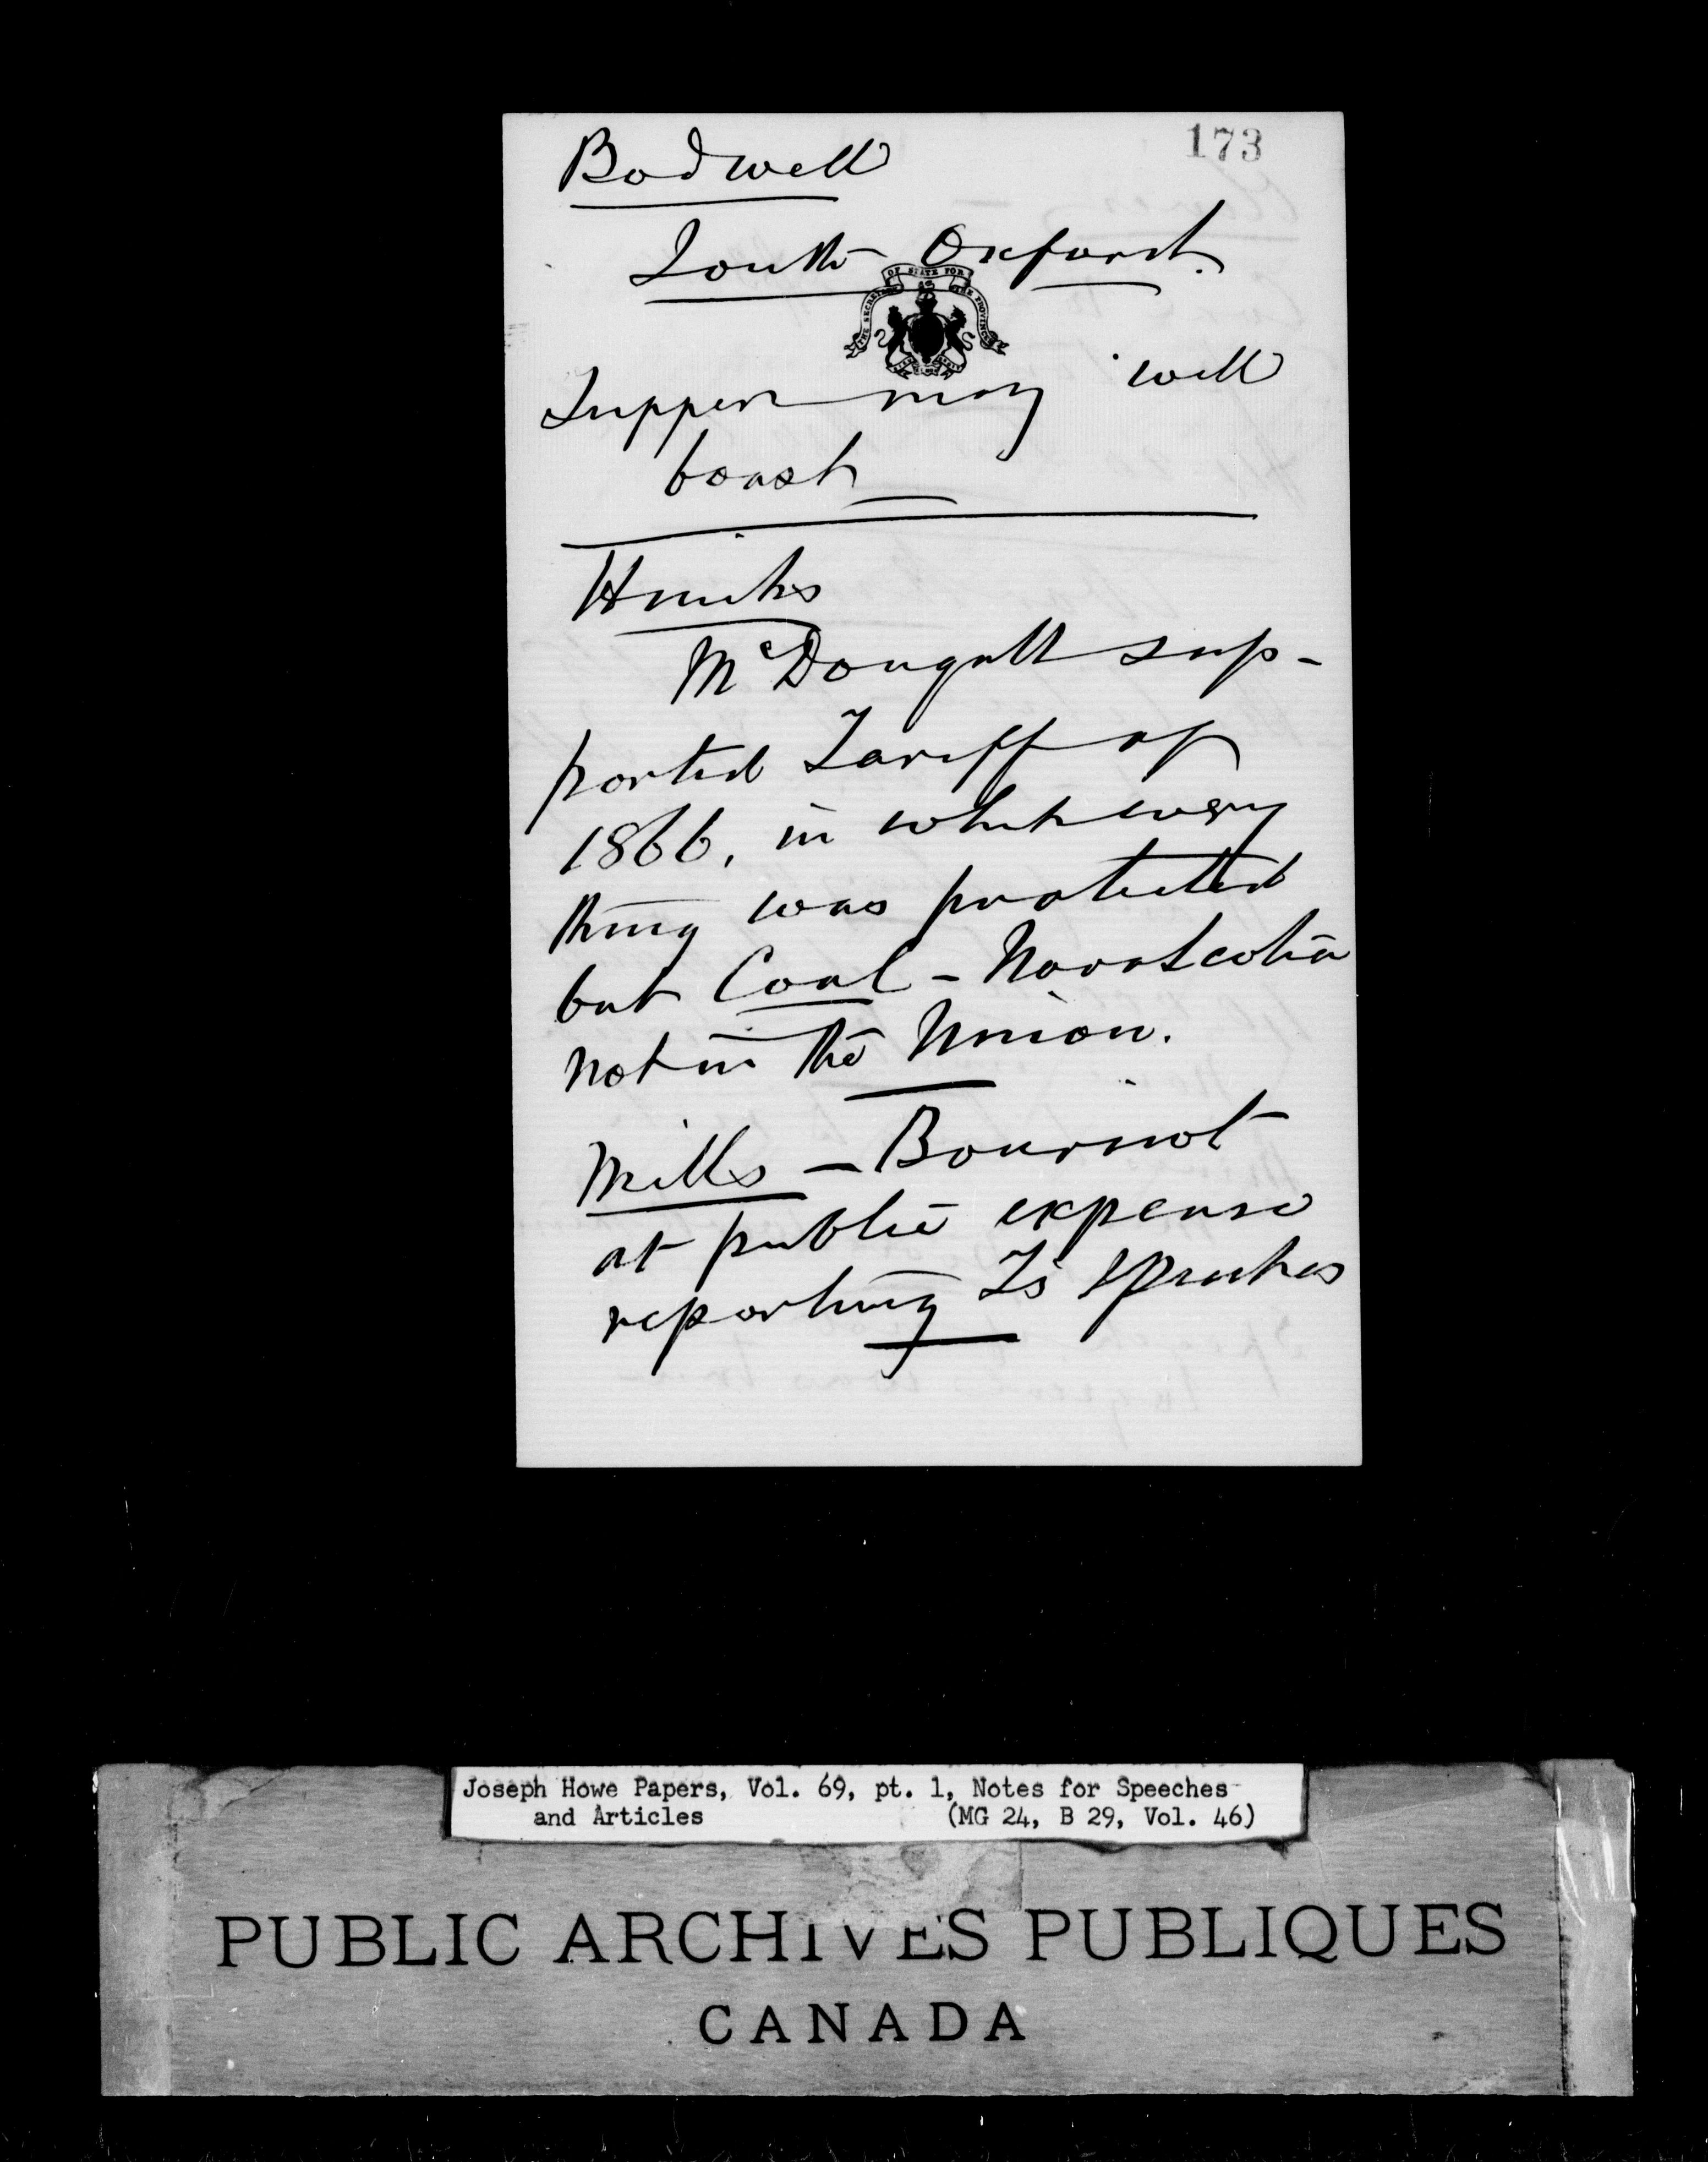 173
Bodwell
South Oxford.
THE SECRETARY OF STATE FOR THE PROVINCES
Tupper may well
boast
Hincks
McDougall sup-
ported Tariff of
1866, in which every
thing was protected
but Coal - Nova Scotia
not in the Union.
Mills - Bourinot
at public expense
reporting Ts speeches
Joseph Howe Papers, Vol. 69, pt. 1, Notes for Speeches
and Articles (MG 24, B 29, Vol. 46)
PUBLIC ARCHIVES PUBLIQUES
CANADA